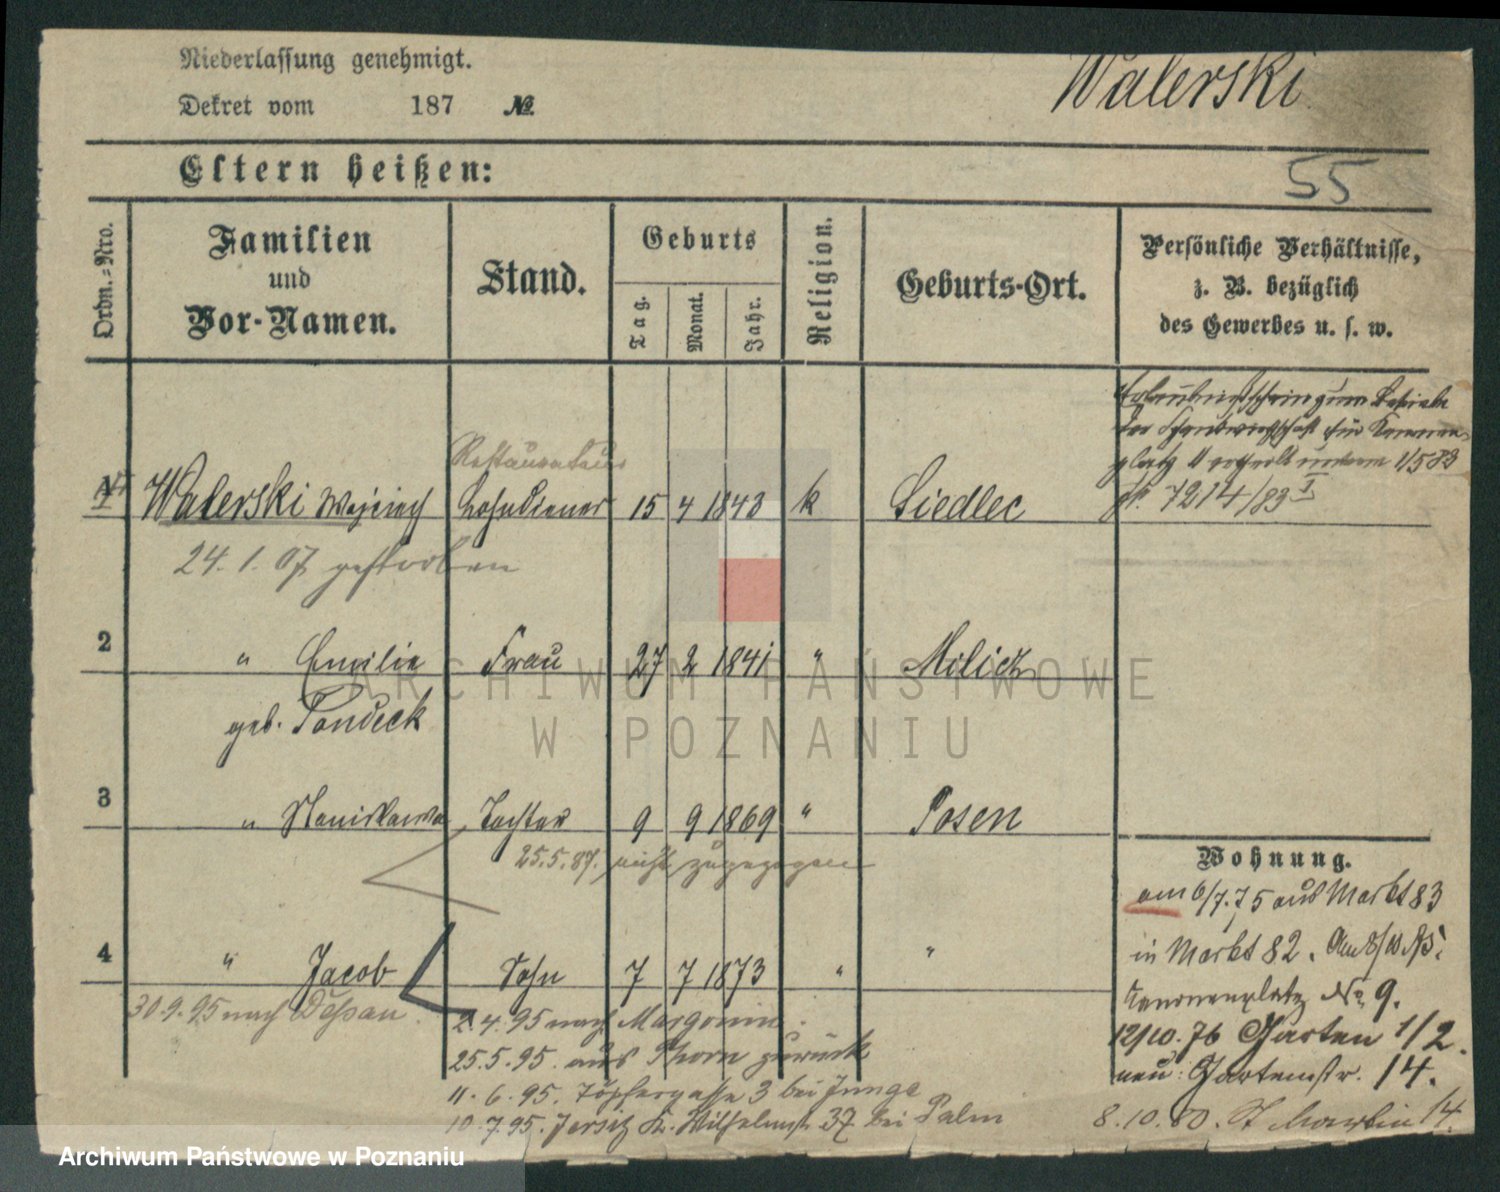 Niederlassung genehmigt.
Walerski
Dekret vom 187 №
Eltern heißen:
55
Ordn.-Nro.
Familien
und
Vor-Namen.
Stand.
Geburts
Tag.
Monat.
Jahr.
Religion.
Geburts-Ort.
Persönliche Verhältnisse,
z. B. bezüglich
des Gewerbes u. s. w.
Erlaubnißschein zum Betriebe
der Schankwirthschaft
7214/83 I
Restaurateur
1 Walerski Wojciech Lohndiener 15 4 1843 k Siedlec
24. 1. 07 gestorben
2 " Emilie Frau 27 2 1841 " Milicz
geb. Pandeck
3 " Stanislawa Tochter 9 9 1869 " Posen
25.5.87. nicht zugezogen
4 " Jacob Sohn 7 7 1873 " "
30.9.95 nach Dessau.
2.4.95 nach Margonin.
25.5.95. aus Thorn zurück
11.6.95. Töpfergasse 3 bei Junge
10.7.95. Jersitz K. Wilhelmstr. 37 bei Palm
Wohnung.
am 6/7. 75 aus Markt 83
in Markt 82.
Kanonenplatz No 9.
12/10. 76 Garten 1/2.
neu: Gartenstr. 14.
8.10.80. St Martin 14.
ARCHIWUM PAŃSTWOWE
W POZNANIU
Archiwum Państwowe w Poznaniu